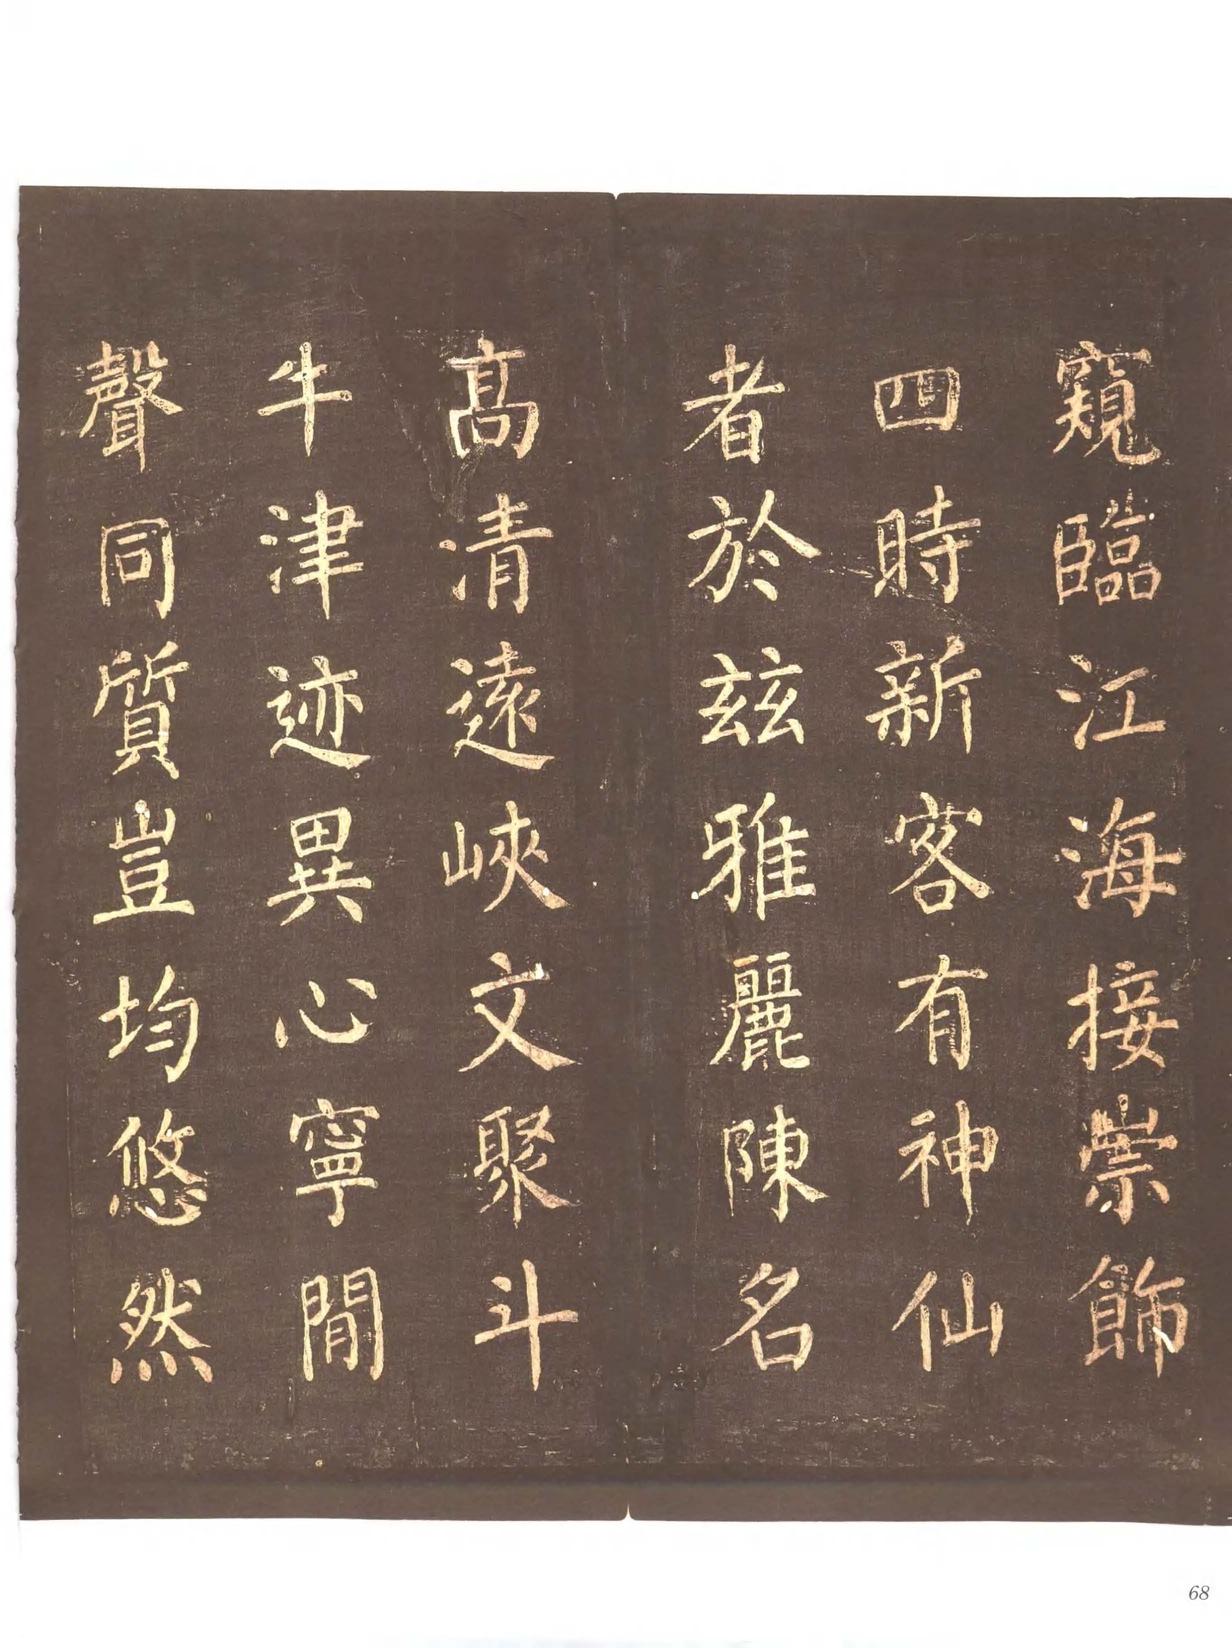 窺臨江海接崇飾
四時新客有神仙
者於茲雅麗陳名
髙清遠峽文聚斗
牛津迹異心寧閒
聲同質豈均悠然
68